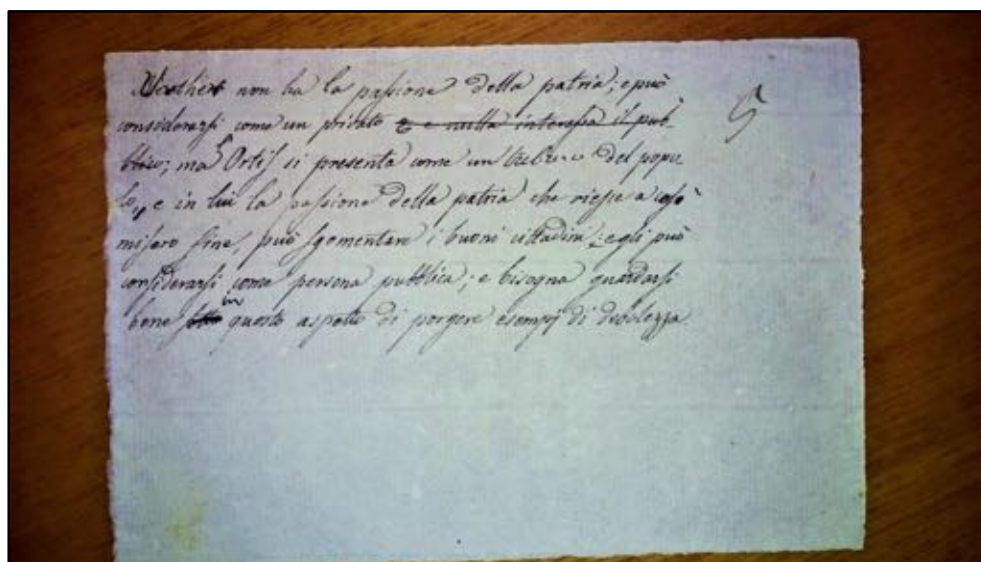 Werther non ha la passione della patria; e può
considerarsi come un privato e e nulla interessa il pub-
blico; ma Ortis si presenta come un tribuno del popu-
lo, e in lui la passione della patria che riesce a così
misero fine, può sgomentare i buoni cittadini; egli può
considerarsi come persona pubblica; e bisogna guardarsi
bene sotto in questo aspetto di porgere esempj di debolezza
5